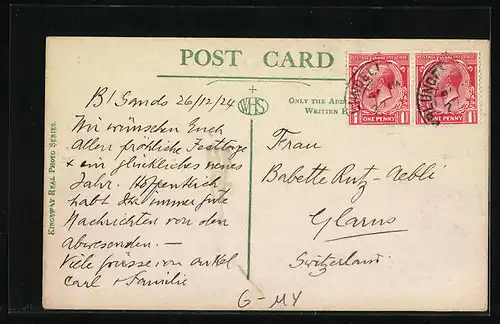 POST CARD
WHS
ONLY THE ADD
WRITTEN H
POSTAGE REVENUE
ONE PENNY
POSTAGE REVENUE
ONE PENNY
KINGSWAY REAL PHOTO SERIES.
B/ Sands 26/12/24
Wir wünschen Euch
allen fröhliche Festtage
+ ein glückliches neues
Jahr. Hoffentlich
habt Ihr immer gute
Nachrichten von den
abwesenden. —
Viele Grüsse von onkel
Carl + Familie
Frau
Babette Rutz-Aebli
Glarus
Switzerland.
G-MY